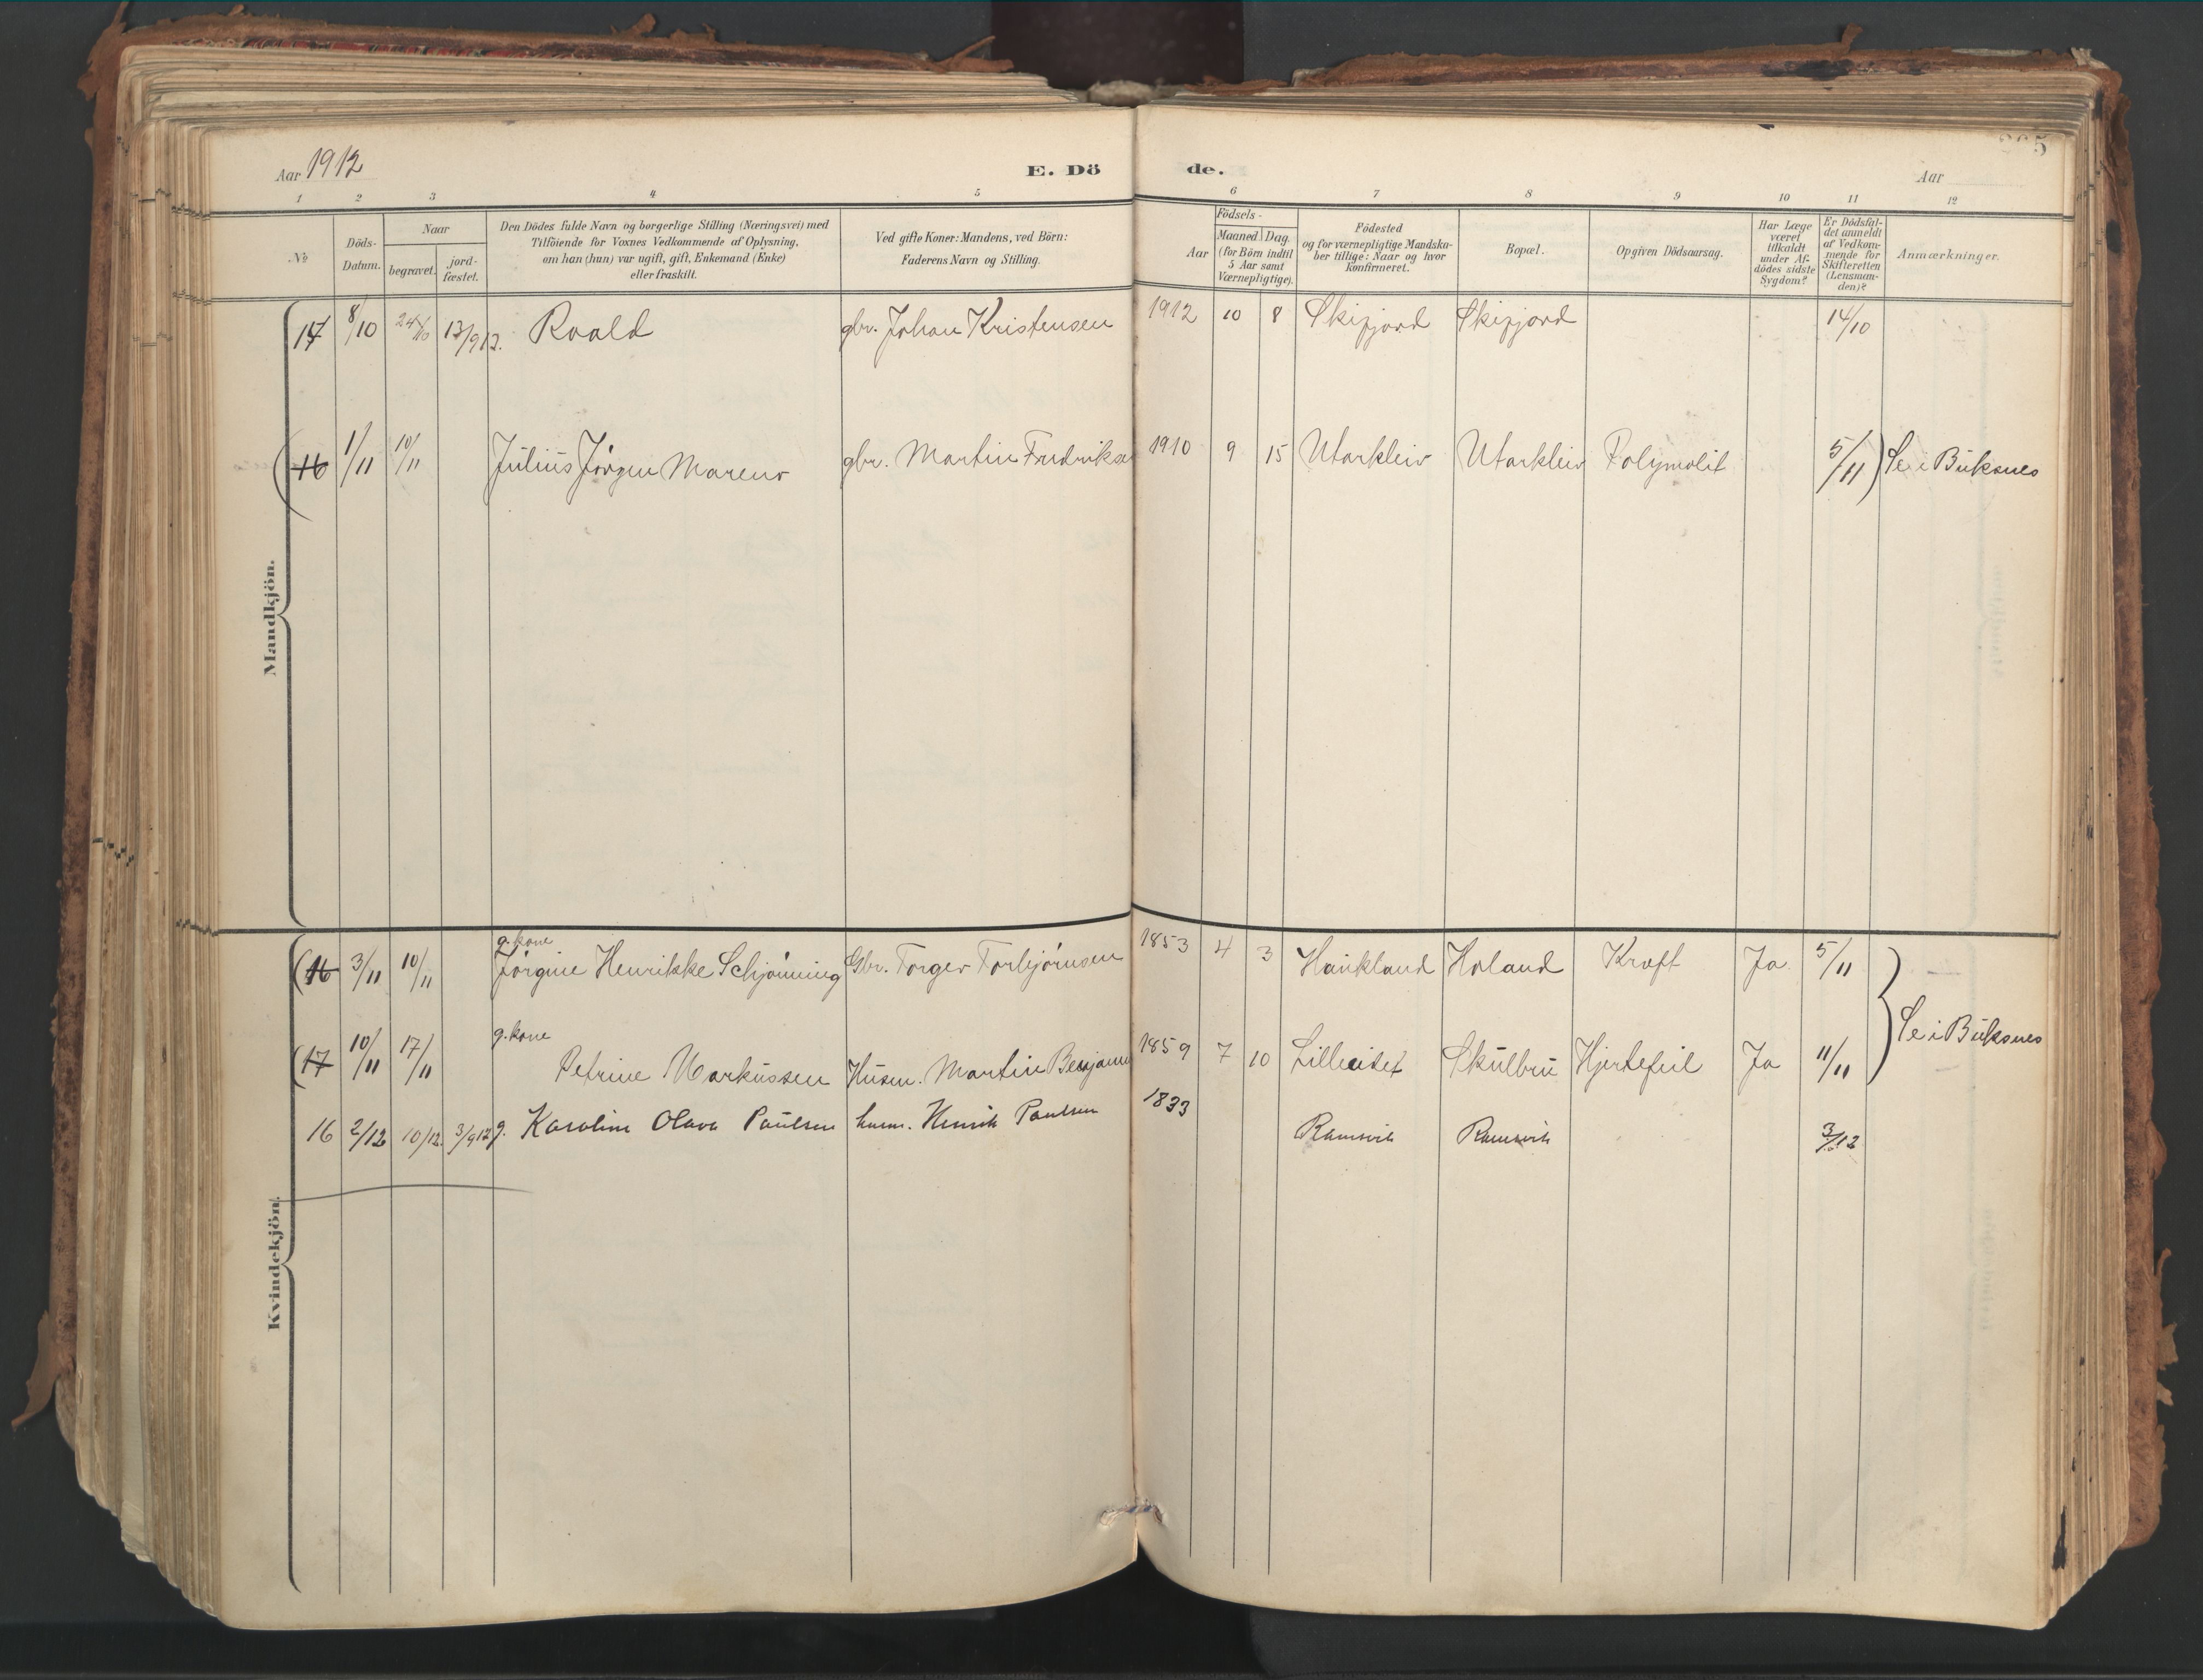 Aar 1912
E. Dö
de.
Aar
5
1 2 3 4 5 6 7 8 9 10 11 12
No
Döds-Datum.
Naar
begravet.
jord-fæstet.
Den Dödes fulde Navn og borgerlige Stilling (Næringsvei) med
Tilföiende for Voxnes Vedkommende af Oplysning,
om han (hun) var ugift, gift, Enkemand (Enke)
eller fraskilt.
Ved gifte Koner: Mandens, ved Börn:
Faderens Navn og Stilling.
Födsels-
Aar
Maaned. Dag.
(for Börn indtil
5 Aar samt
Værnepligtige).
Födested
og for værnepligtige Mandska-
ber tillige: Naar og hvor
konfirmeret.
Bopæl.
Opgiven Dödsaarsag.
Har Læge
været
tilkaldt
under Af-
dödes sidste
Sygdom?
Er Dödsfal-
det anmeldt
af Vedkom-
mende for
Skifteretten
(Lensman-
den)?
Anmærkninger.
Mandkjön.
17 8/10 24/10 13/9 13. Roald gbr. Johan Kristensen 1912 10 8 Skifjord Skifjord 14/10
(16 1/11 10/11 Julius Jörgen Marens gbr. Martin Fredriksen 1910 9 15 Utarkleiv Utarkleiv Polymolit 5/11) Se i Buksnes
Kvindekjön.
g. kone
(16 3/11 10/11 Jörgine Henrikke Schjönning Gbr. Torger Torbjörnsen 1853 4 3 Haukland Holand Kræft Ja 5/11
g. kone
(17 10/11 17/11 Petrine Markussen Husm. Martin Benjamin 1859 7 10 Lilleeidet Skulbru Hjertefeil Ja 11/11
Se i Buksnes
16 2/12 10/12. 3/9 12 g. Karoline Olava Paulsen husm. Henrik Paulsen 1833 Ramsvik Ramsvik 3/12